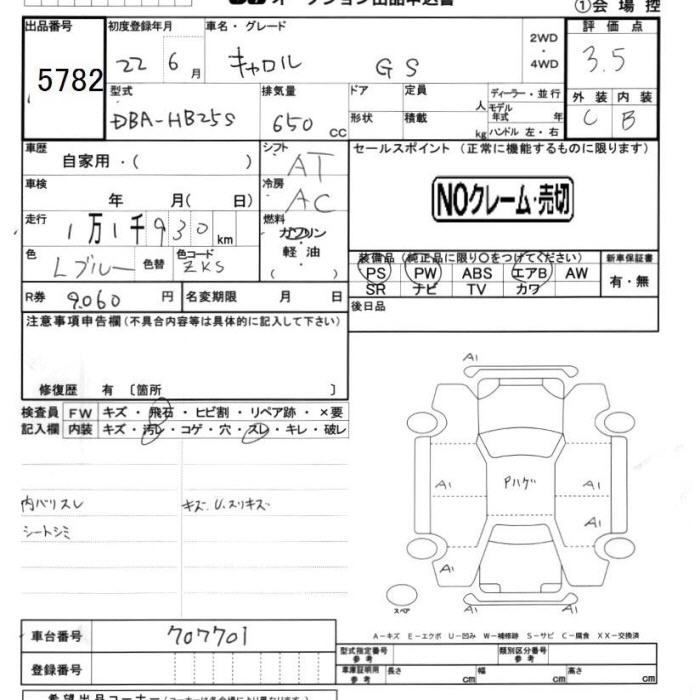 オークション出品申込書
①会場控
出品番号 初度登録年月 車名・グレード 2WD・4WD 評価点
5782 22 6月 キャロル GS 3.5
型式 排気量 ドア 定員 人 ディーラー・並行 外装 内装
DBA-HB25S 650 cc 形状 積載 kg モデル年式 年 ハンドル 左・右 C B
車歴 自家用・( ) シフト AT セールスポイント (正常に機能するものに限ります)
車検 年 月( 日) 冷房 AC
NOクレーム・売切
走行 1万1千930km 燃料 ガソリン・軽油・( )
色 Lブルー 色替 色コード ZKS
装備品(純正品に限り○をつけてください) 新車保証書
PS PW ABS エアB AW 有・無
SR ナビ TV カワ
R券 9060円 名変期限 月 日 後日品
注意事項申告欄(不具合内容等は具体的に記入して下さい)
修復歴 有 〔箇所 〕
検査員 FW キズ・飛石・ヒビ割・リペア跡・×要
記入欄 内装 キズ・汚レ・コゲ・穴・スレ・キレ・破レ
内バリスレ キズ.U.スリキズ
シートシミ
A1
A1 Pハゲ A1
A1
A1
A1
スペア
A-キズ E-エクボ U-凹み W-補修跡 S-サビ C-腐食 XX-交換済
車台番号 707701
型式指定番号 参考 類別区分番号 参考
登録番号 車庫証明用 参考 長さ cm 幅 cm 高さ cm
希望出品コーナー(コーナーは各会場により異なります)